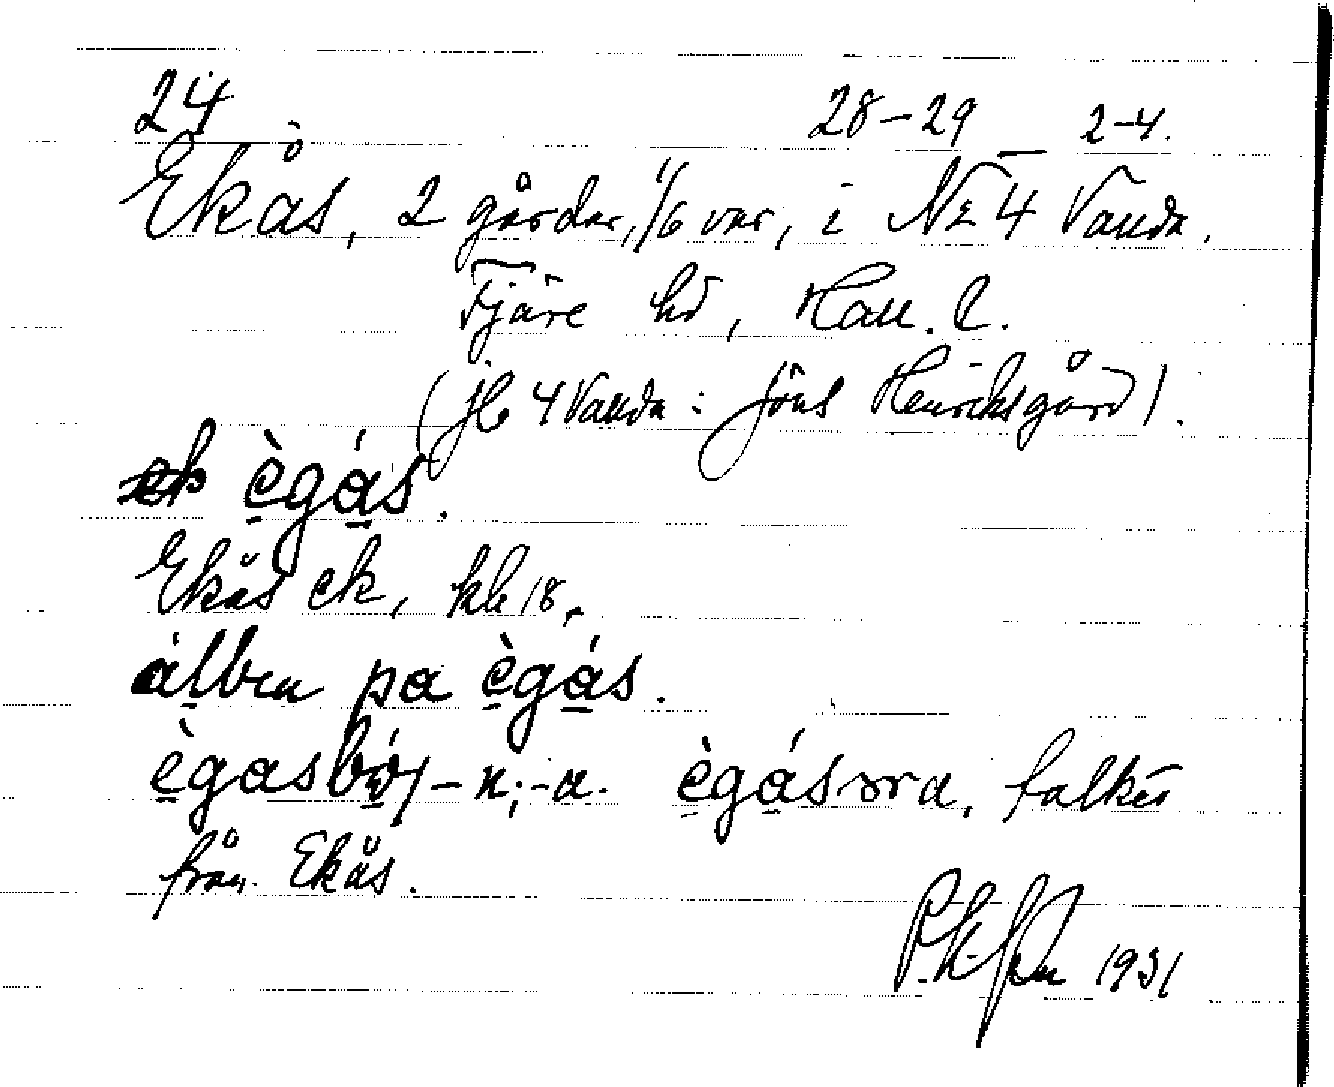 24 28-29 2-4.
Ekås, 2 gårdar, 1/6 var, i No 4 Vanda.
Fjäre hd, Hall. l.
(jb 4 Vanda: Jöns Henriksgård).
ègás.
Ekås ek, kb 18.
álbrn pa ègás.
ègasbó, -n; -a. ègásɔra, folket
från Ekås.
1931